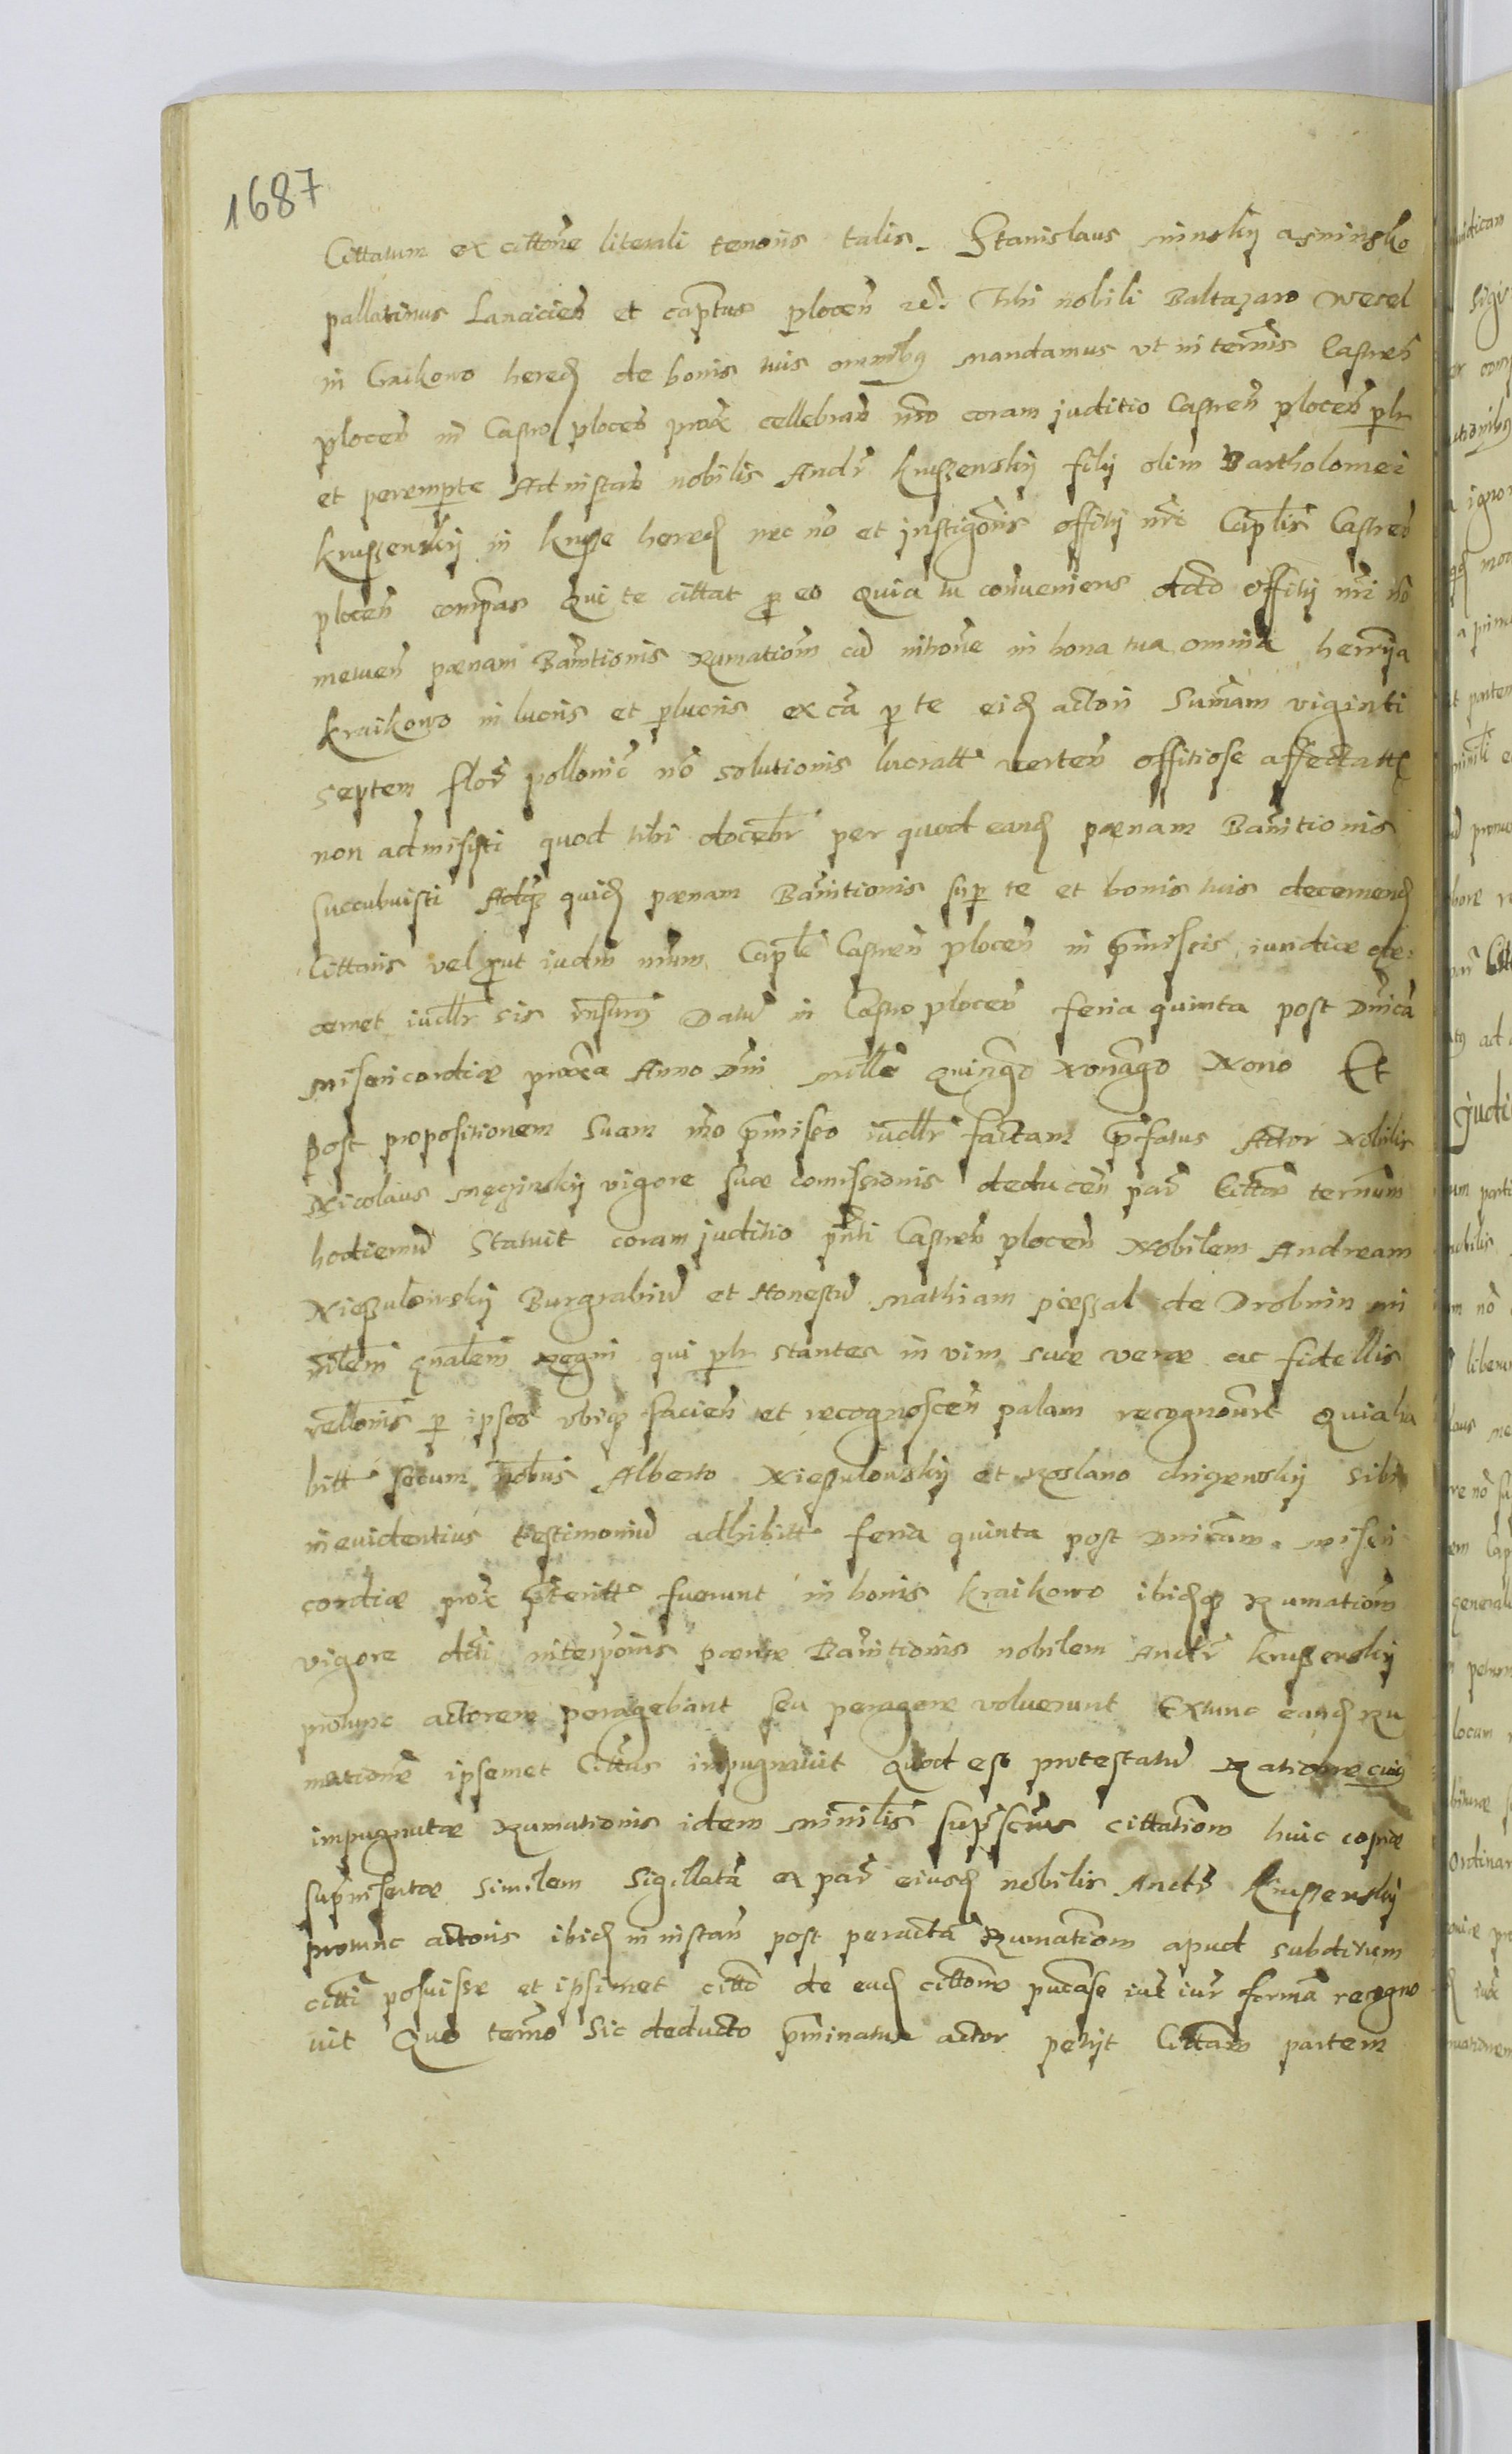 1687
Cittatum ex cittone literali tenoris talis. Stanislaus minsky a sminsko
pallatinus Lancicien et captus plocen etc. Tibi nobili Baltazaro Wesel
in Craikowo hered de bonis tuis omnibq mandamus vt in ternis Castren
plocen in Castro plocen prox cellebran nro coram juditio Castren plocen plr
et perempte Ad instan nobilis Andr kruszensky filij olim Bartholomei
kruszensky in krusze hered nec no et instigonis offitij nri Caplis Castren
plocen compas Qui te cittat p eo Quia tu conveniens dcto offitij nri no
metuen pænam Bannitionis Rumationem cu introne in bona tua omnia herria
kraikowo in lucris et perlucris ex ca p te eid actori Sumam viginti
septem flor pollonic no solutionis lucratt verten offitiose affectatt
non admisisti quod tibi docebr per quod eand pænam Bannitionis
succubuisti Adq quid pænam Bannitionis sup te et bonis tuis decernend
Cittaris vel prut iudm nrum Caple Castren plocen in pmissis iuridice de=
cernet iudlr sis Datu in Castro plocen feria quinta post Dnica
misericordiæ proxa Anno Dni mille Quingo Nonago Nono Et
post propositionem suam mo pmisso iudlr factam pfatus Actor Nobilis
Nicolaus męczinsky vigore suæ comissionis deducen par Cittam ternum
hodiernu Statuit coram juditio pnti Castren plocen Nobilem Andream
Nieszulowsky Burgrabiu et Honestu Mathiam pieszal de Drobnin mi
nilem gnalem Regni qui plr stantes in vim suæ veræ ac fidellis
rellonis p ipsos vbiq facien et recognoscen palam recognourt Quia ha
bitt secum nobus Alberto Nieszulowsky et Roslano chigensky sibi
in euidentius testimoniu adhibitt feria quinta post Dnicam miseri
cordiæ prox pteritt fuerunt in bonis kraikowo ibidq Rumationem
vigore dcti interponis pænæ Bannitionis nobilem Andr kruszensky
protunc actorem peragebant seu peragere voluerunt Extunc eand Ru
mationem ipsemet Cittus impugnauit Quod est protestatu Ratione cuiq
impugnatæ Rumationis idem minilis supscrus cittationem huic copiæ
supinsertæ similem sigillata ex par eiusd nobilis Andr kruszensky
protunc actoris ibid in instan post peracta Rumationem apud subditum
citti posuisse et ipsimet citto de ead cittone pucasse iux iur forma recogno
uit Quo termo sic deducto pminatus actor petijt Cittam partem